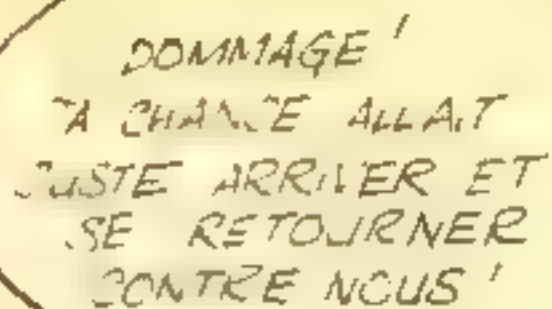 DOMMAGE !
TA CHANCE ALLAIT
JUSTE ARRIVER ET
SE RETOURNER
CONTRE NOUS !